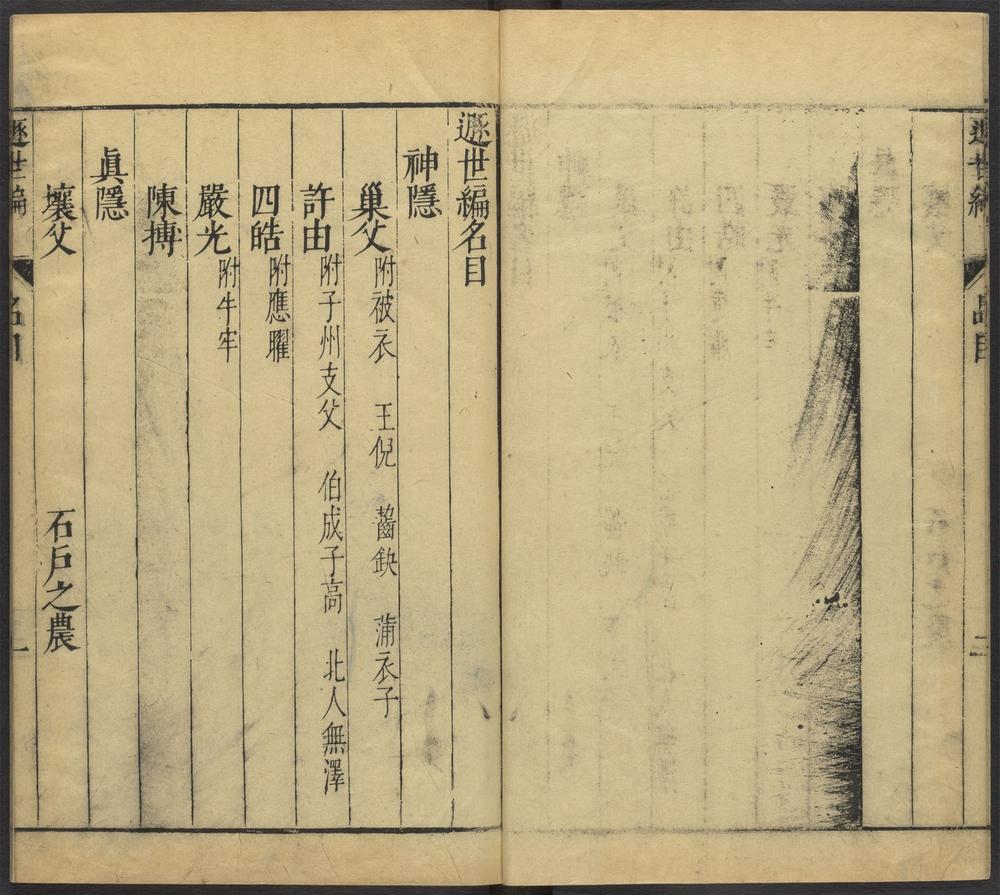 遯世編
品目
二
遯世編名目
神隱
巢父 附被衣 王倪 齧缺 蒲衣子
許由 附子州支父 伯成子高 北人無澤
四皓 附應曜
嚴光 附牛牢
陳摶
眞隱
壤父 石戶之農
遯世編
名目
一